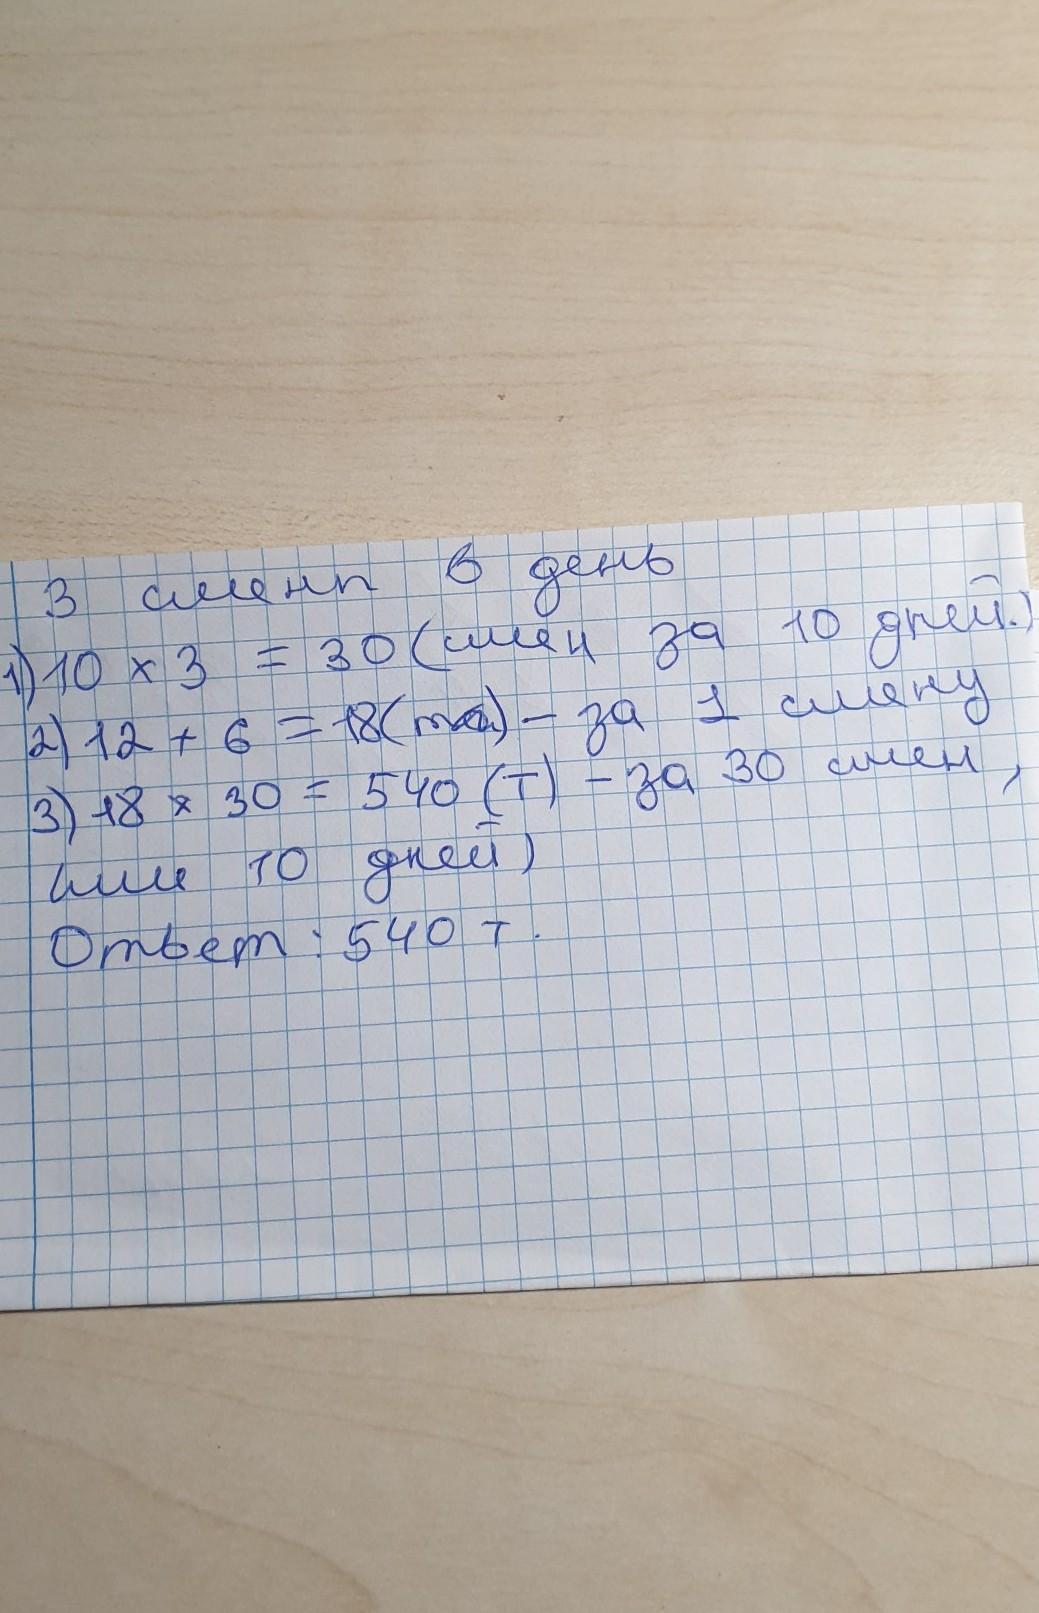 3 смены в день
1) 10 × 3 = 30 (смен за 10 дней.)
2) 12 + 6 = 18 ( ) - за 1 смену
3) 18 × 30 = 540 (т) - за 30 смен,
или 10 дней)
Ответ: 540 т.